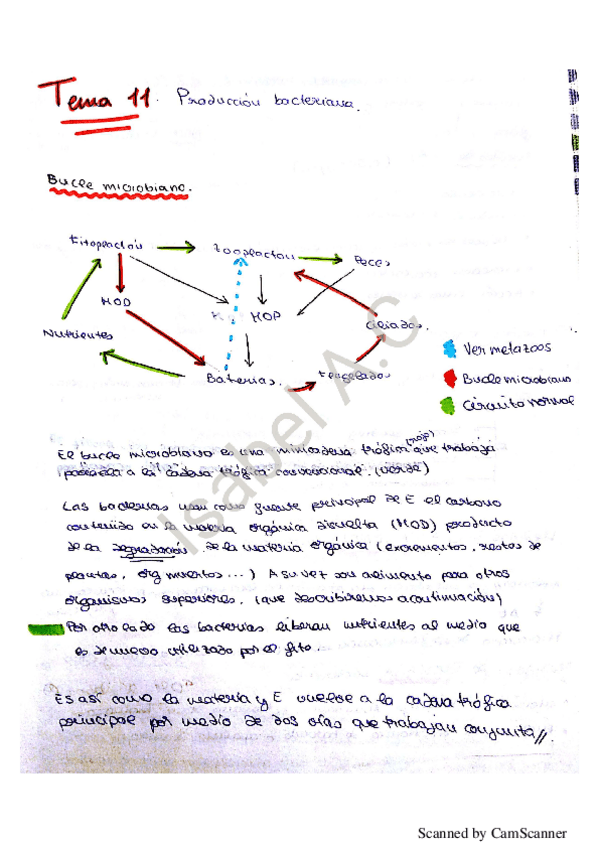 Tema 11. Producción bacteriana.
Bucle microbiano.
Fitoplacton
Zooplacton
Peces
MOD
MOP
Ciliados.
Nutrientes
Baterias.
Flagelados
Ver metazoos
Bucle microbiano
Circuito normal
El bucle microbiano es una minicadena trófica (rojo) que trabaja
paralela a la cadena trófica convencional. (verde)
Las bacterias usan como fuente principal de E el carbono
contenido en la materia orgánica disuelta (MOD) producto
de la degradación de la materia orgánica (excrementos, restos de
plantas, org muertos...) A su vez son alimento para otros
organismos superiores. (que describiremos a continuación)
Por otro lado las bacterias liberan nutrientes al medio que
es de nuevo utilizado por el fito.
Es así como la materia y E vuelve a la cadena trófica
principal por medio de dos que trabajan conjunta//.
Isabel A.C
Scanned by CamScanner